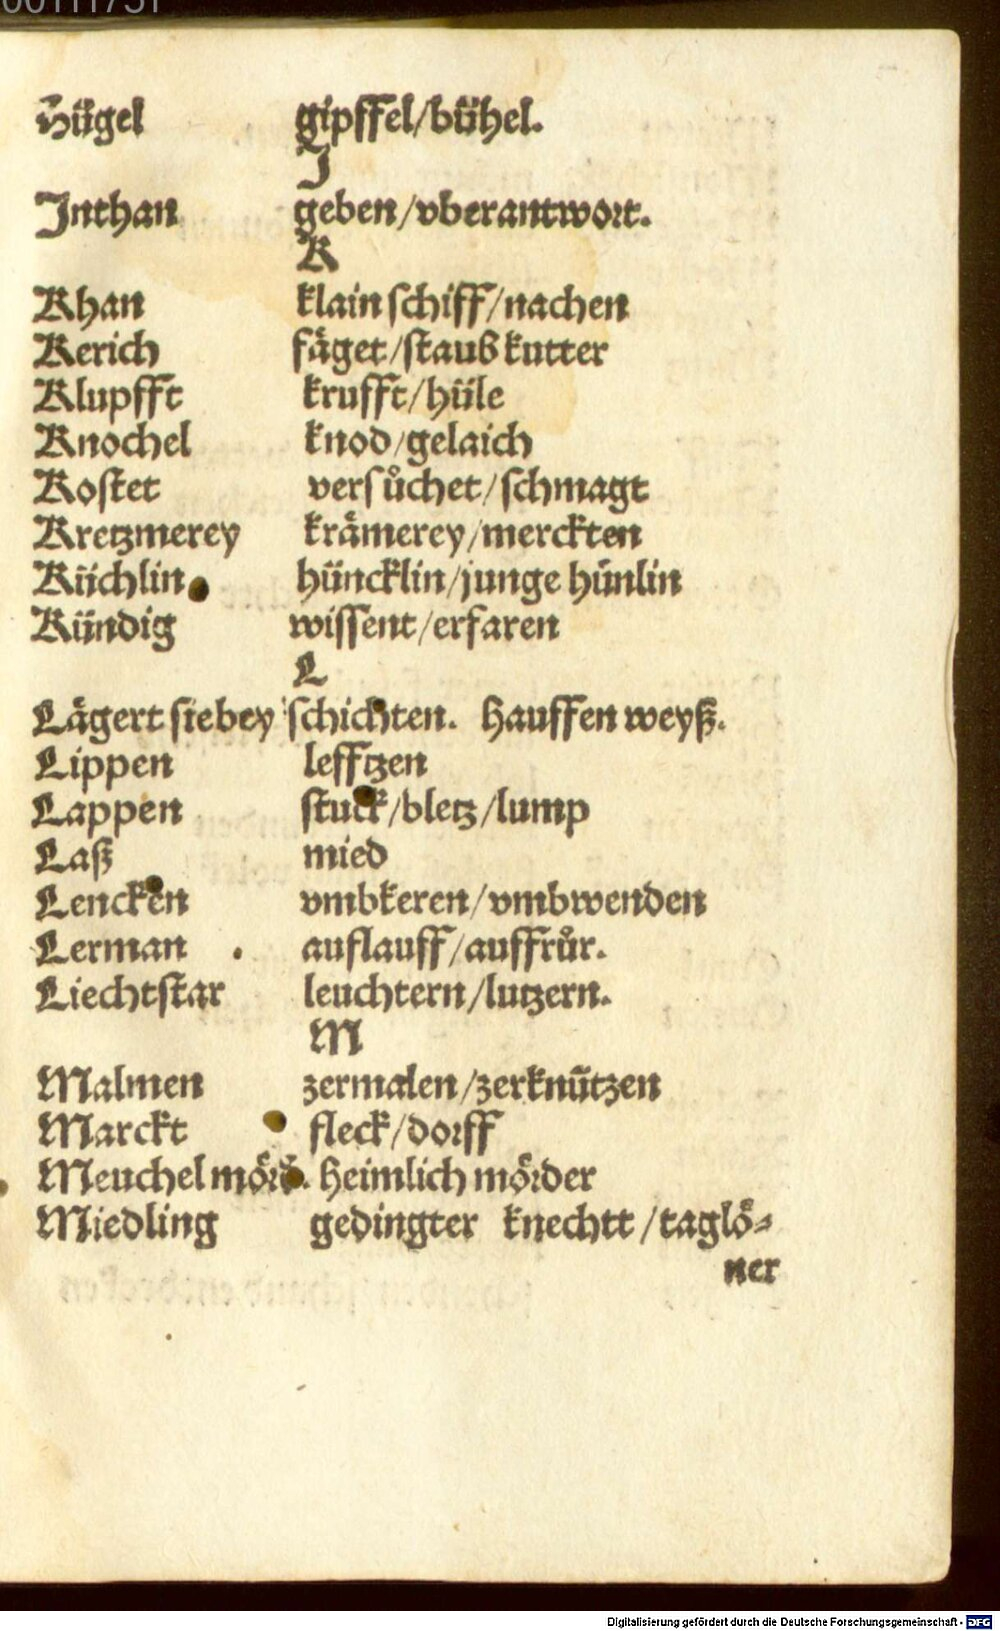 Hügel gipffel/bühel.
J
Jnthan geben/vberantwort.
K
Khan klain schiff/nachen
Kerich fäget/staubkutter
Klupfft krufft/hüle
Knochel knod/gelaich
Kostet versůchet/schmagt
Kretzmerey krämerey/merckten
Küchlin hüncklin/junge hünlin
Kündig wissent/erfaren
L
Lägert sie bey schichten. Hauffen weyß.
Lippen lefftzen
Lappen stuck/bletz/lump
Laß mied
Lencken vmbkeren/vmbwenden
Lerman auflauff/auffrůr.
Liechtstar leuchtern/lutzern.
M
Malmen zermalen/zerknützen
Marckt fleck/dorff
Meuchel mörd. Heimlich mörder
Miedling gedingter knechtt/taglö⸗
ner
Digitalisierung gefördert durch die Deutsche Forschungsgemeinschaft - DFG